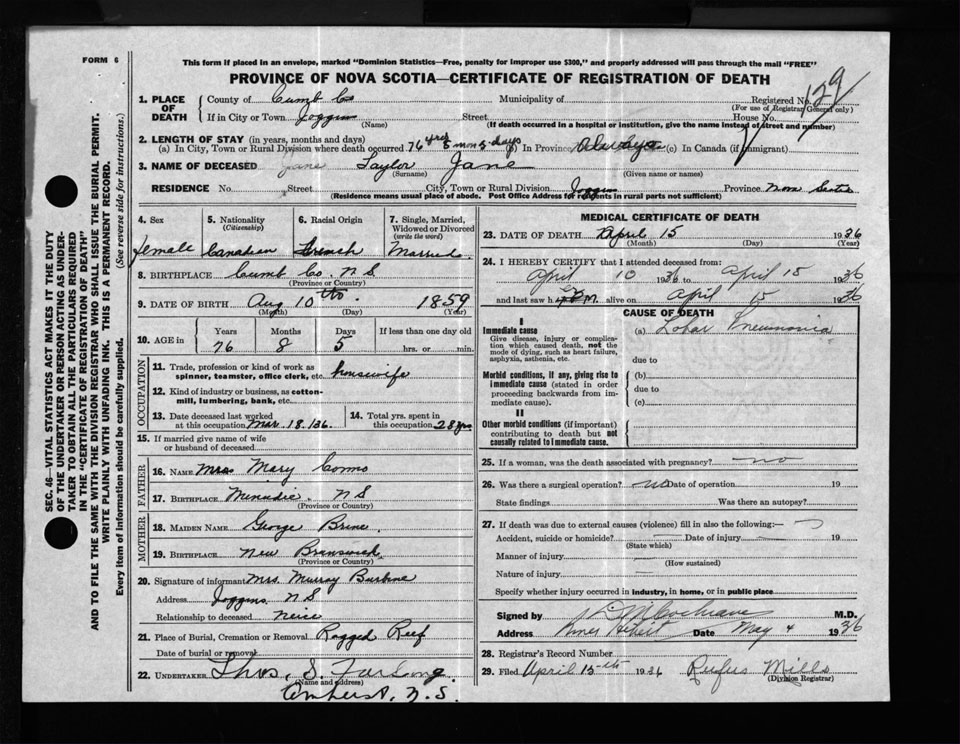 FORM 6
This form if placed in an envelope, marked "Dominion Statistics—Free, penalty for improper use $300," and properly addressed will pass through the mail "FREE"
PROVINCE OF NOVA SCOTIA—CERTIFICATE OF REGISTRATION OF DEATH
SEC. 46—VITAL STATISTICS ACT MAKES IT THE DUTY
OF THE UNDERTAKER OR PERSON ACTING AS UNDER-
TAKER TO OBTAIN ALL THE PARTICULARS REQUIRED
IN THE "CERTIFICATE OF REGISTRATION OF DEATH"
AND TO FILE THE SAME WITH THE DIVISION REGISTRAR WHO SHALL ISSUE THE BURIAL PERMIT.
WRITE PLAINLY WITH UNFADING INK. THIS IS A PERMANENT RECORD.
Every item of information should be carefully supplied. (See reverse side for instructions.)
1. PLACE OF DEATH County of Cumb Co Municipality of Registered No. 129
(For use of Registrar General only)
If in City or Town Joggins Street House No.
(Name) (If death occurred in a hospital or institution, give the name instead of street and number)
2. LENGTH OF STAY (in years, months and days)
(a) In City, Town or Rural Division where death occurred 76 yrs 5 mons 5 days (b) In Province Always (c) In Canada (if immigrant)
3. NAME OF DECEASED Jane Taylor Jane
(Surname) (Given name or names)
RESIDENCE No. Street City, Town or Rural Division Joggins Province Nova Scotia
(Residence means usual place of abode. Post Office Address for residents in rural parts not sufficient)
4. Sex 5. Nationality 6. Racial Origin 7. Single, Married,
(Citizenship) Widowed or Divorced
(write the word)
female Canadian French Married
8. BIRTHPLACE Cumb Co. N S
(Province or Country)
9. DATE OF BIRTH Aug 10 th 1859
(Month) (Day)
10. AGE in Years Months Days If less than one day old
76 8 5 hrs. or min.
OCCUPATION
11. Trade, profession or kind of work as
spinner, teamster, office clerk, etc. housewife
12. Kind of industry or business, as cotton-
mill, lumbering, bank, etc.
13. Date deceased last worked 14. Total yrs. spent in
at this occupation Mar. 18. 136. this occupation 28 yrs
15. If married give name of wife
or husband of deceased
FATHER
16. NAME Mrs Mary Como
17. BIRTHPLACE Minudie. N S
(Province or Country)
MOTHER
18. MAIDEN NAME George Brine.
19. BIRTHPLACE New Brunswick
(Province or Country)
20. Signature of informant Mrs. Murray Burbine
Address Joggins N S
Relationship to deceased Neice
21. Place of Burial, Cremation or Removal Ragged Reef
Date of burial or removal
22. UNDERTAKER Thos. S. Furlong.
(Name and address)
Amherst, N.S.
MEDICAL CERTIFICATE OF DEATH
23. DATE OF DEATH April 15 1936
(Month) (Day) (Year)
24. I HEREBY CERTIFY that I attended deceased from:
April 10 1936 to April 15 1936
and last saw h alive on April 15 1936
CAUSE OF DEATH
I
Immediate cause
Give disease, injury or complica-
tion which caused death, not the
mode of dying, such as heart failure,
asphyxia, asthenia, etc.
(a) Lobar Pneumonia
due to
Morbid conditions, if any, giving rise to
immediate cause (stated in order
proceeding backwards from im-
mediate cause).
(b)
due to
(c)
II
Other morbid conditions (if important)
contributing to death but not
causally related to immediate cause.
25. If a woman, was the death associated with pregnancy? no
26. Was there a surgical operation? no Date of operation 19
State findings Was there an autopsy?
27. If death was due to external causes (violence) fill in also the following:—
Accident, suicide or homicide? Date of injury 19
(State which)
Manner of injury
(How sustained)
Nature of injury
Specify whether injury occurred in industry, in home, or in public place
Signed by Cochrane M.D.
Address River Hebert Date May 4 1936
28. Registrar's Record Number
29. Filed April 15-th 1936 Rufus Mills
(Division Registrar)